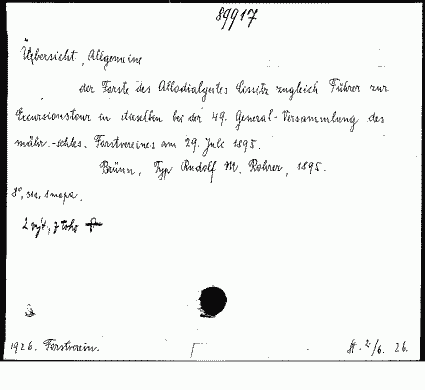 89917
Übersicht, Allgemeine
der Forste des Allodialgutes Lissitz zugleich Führer zur
Excursionstour in dieselben bei der 49. General-Versammlung des
mähr.-schles. Forstvereines am 29. Juli 1895.
Brünn, Typ Rudolf M. Rohrer, 1895.
8°, 1 mapa.
2 výt, z toho
1926. Forstverein.
2/6. 26.